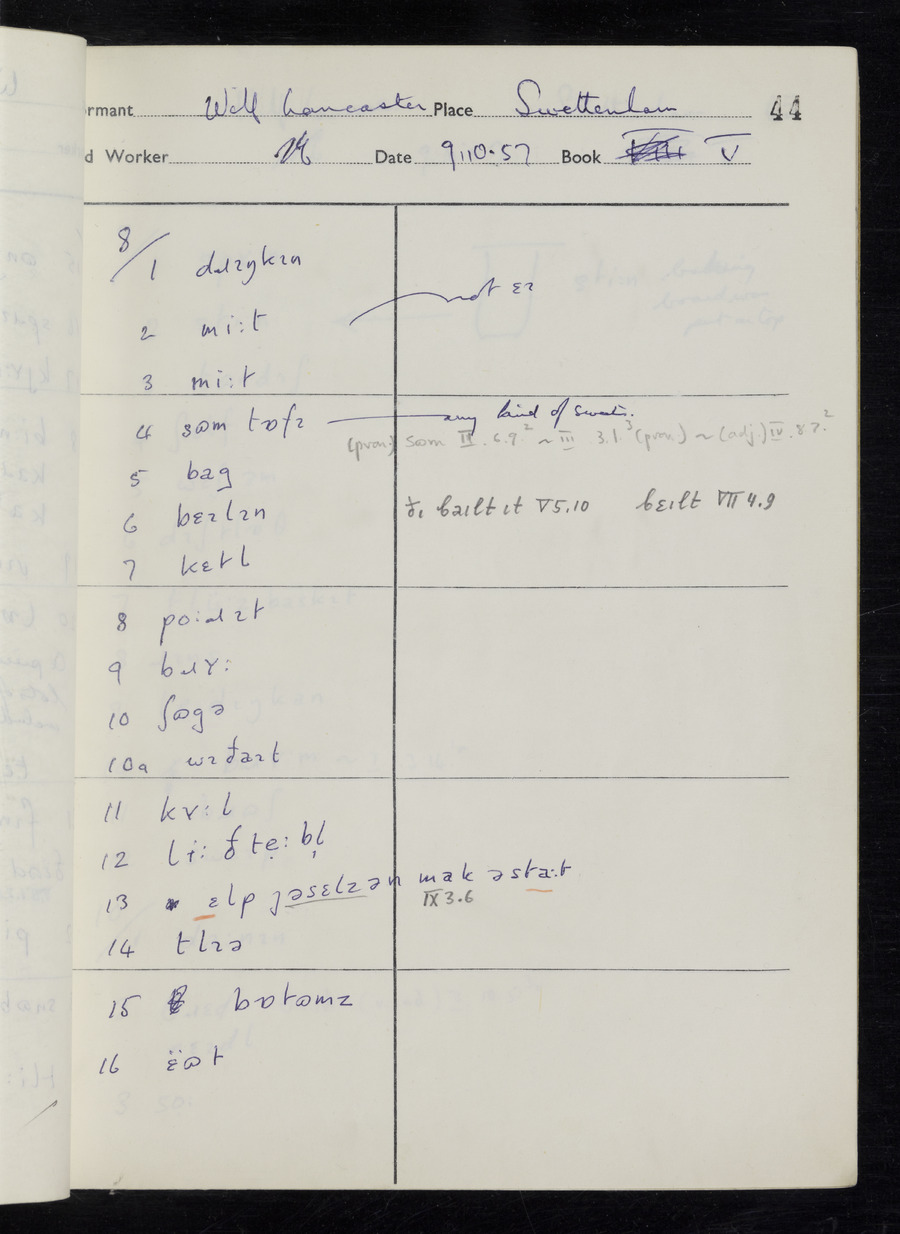 ormant Wilf Lancaster Place Swettenham 44
d Worker Date 9.10.57 Book V
8/1 dɹɪŋkɪn
not ɛɪ
2 mi:t
3 mi:t
4 sɷm tɒfɪ any kind of sweets.
(pron.) sɷm II.6.9.² ~ III 3.1.³ (pron.) ~ (adj.) IV.8.7.²
5 bag
6 bɛɪlɪn ðɪ baɪlt ɪt V5.10 bɛɪlt VII 4.9
7 kɛtl
8 pɔ:ɹɪt
9 bɹʏ:
10 ʃɷgə
10a wɪðaɪt
11 kʏ:l
12 ðtẹ:bl̩
13 ɛlp jəsɛlzən mak əsta:t
IX 3.6
14 tlɪə
15 bɒtɷmz
16 ɛ̈ɷt